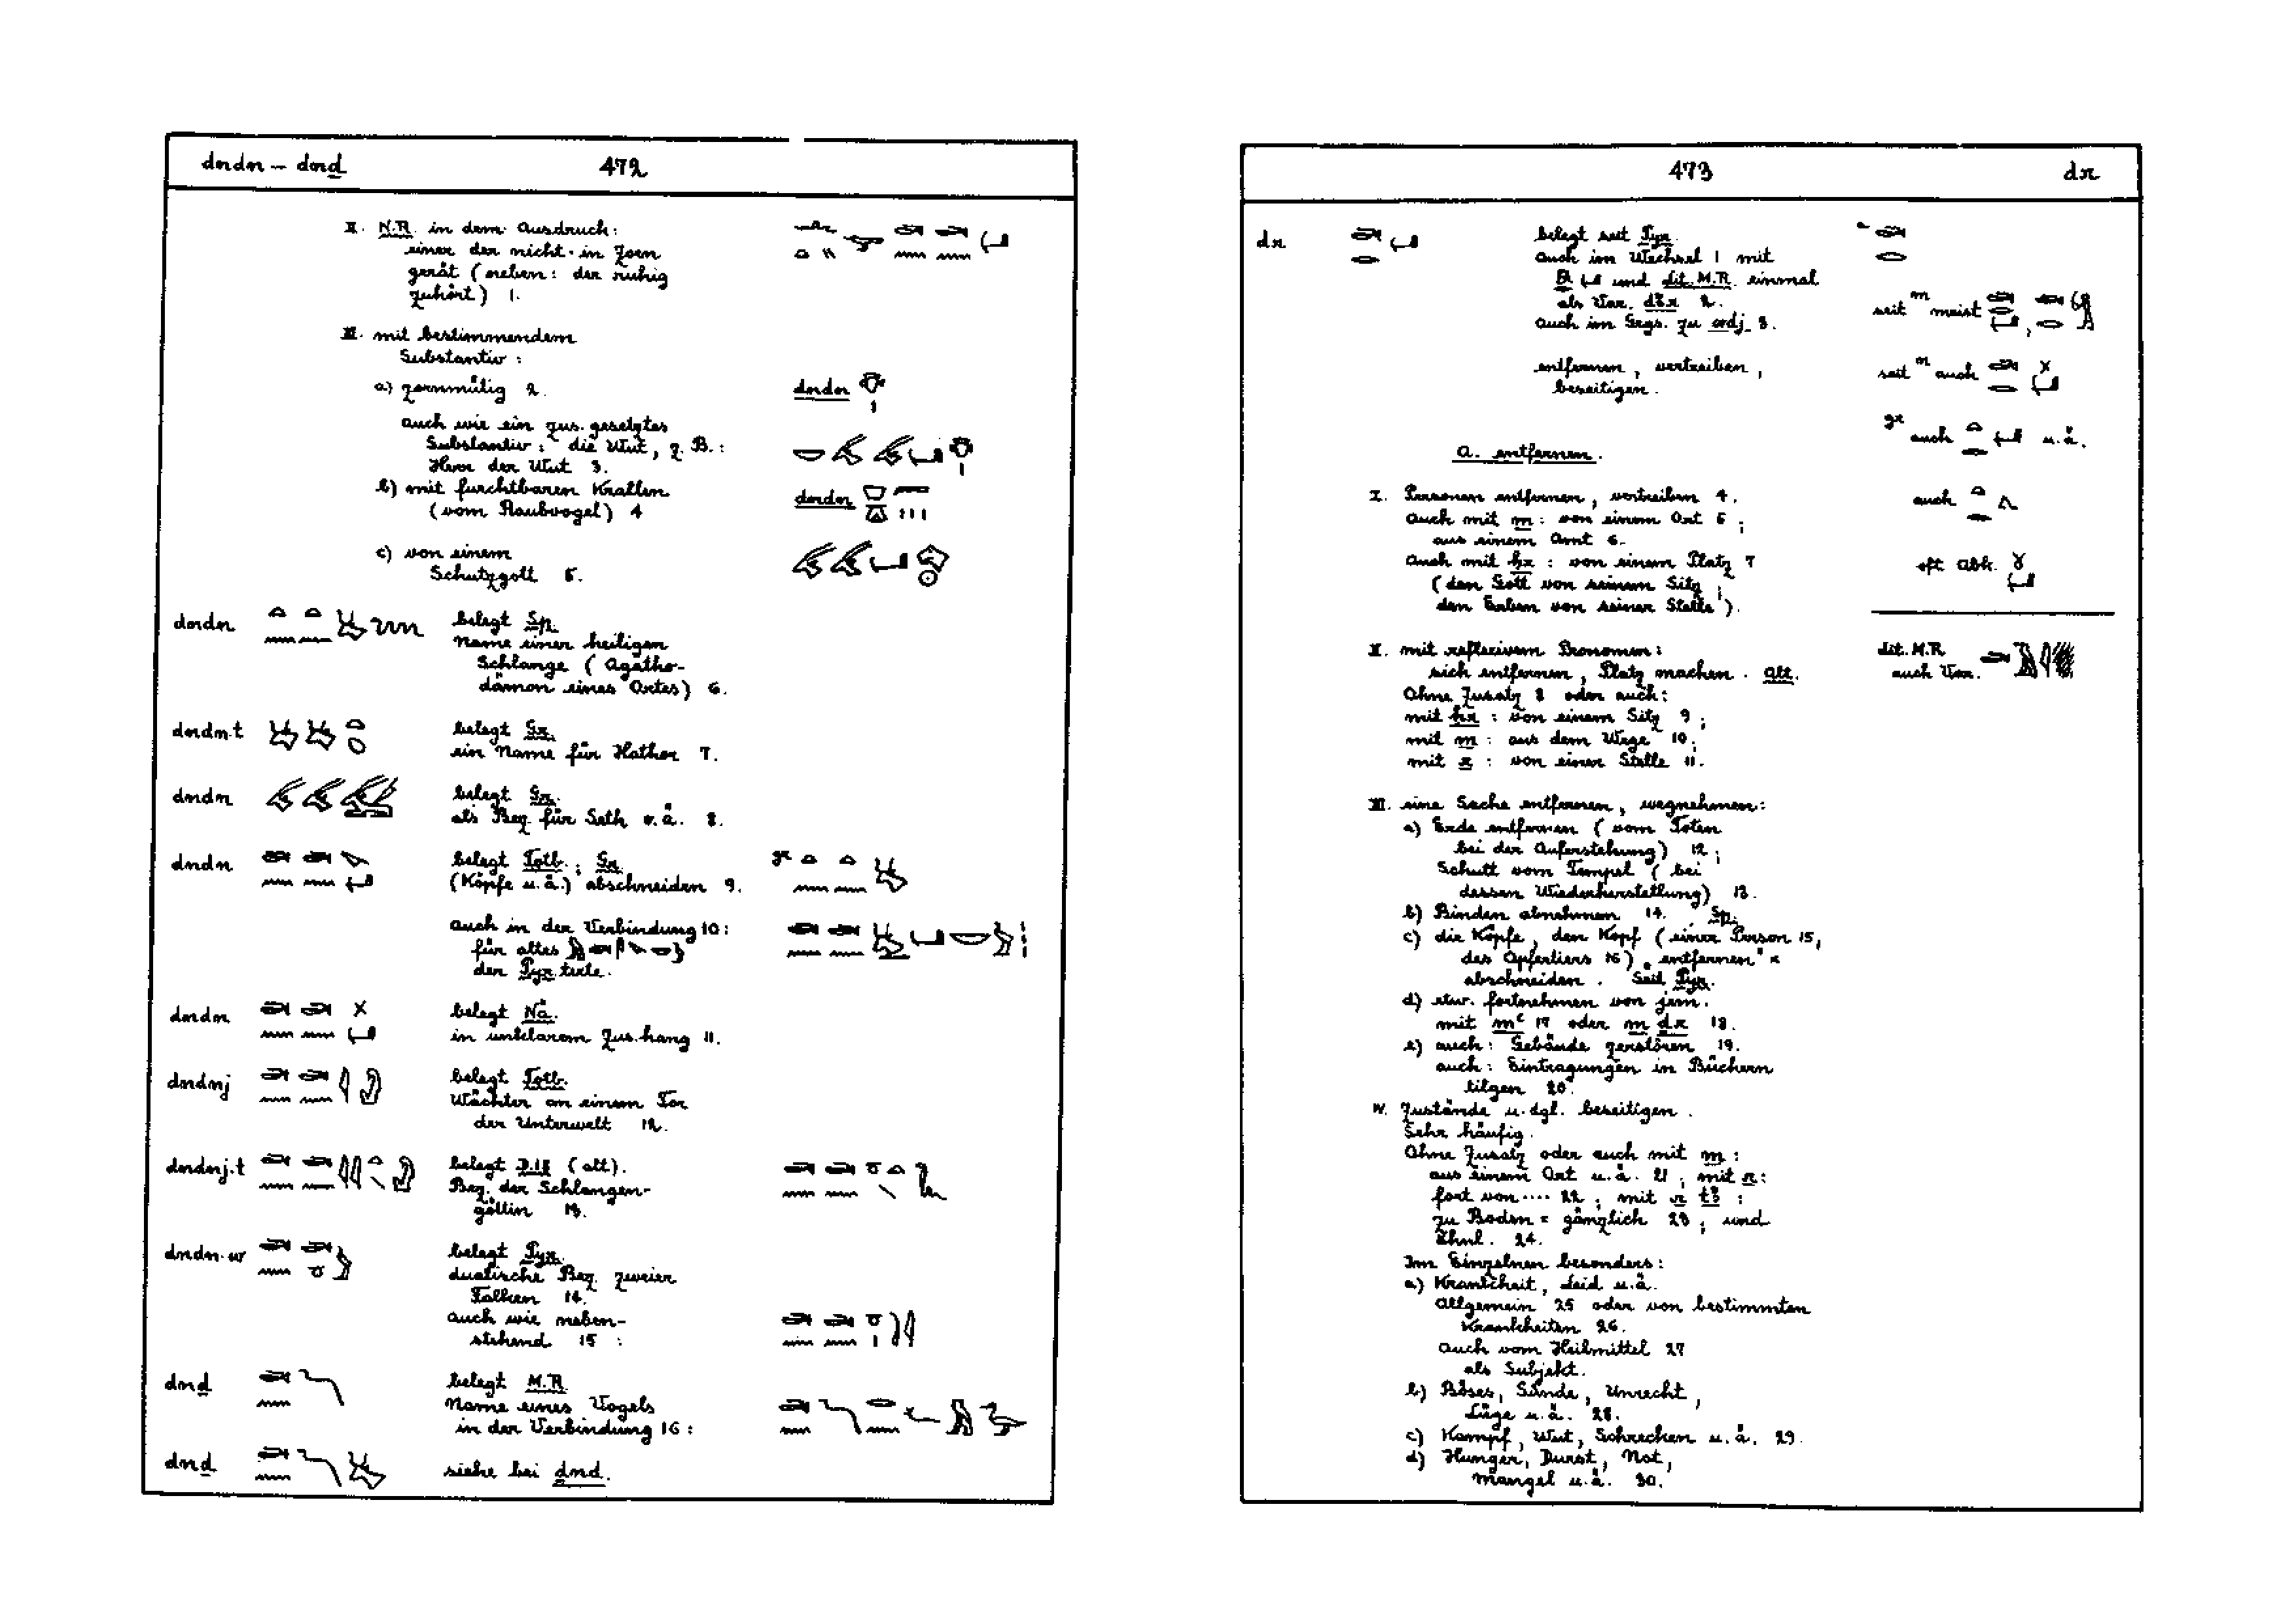 dndn – dnḏ 472
II. N.R. in dem Ausdruck:
einer der nicht in Zorn
gerät (neben: der ruhig
zuhört) 1.
III. mit bestimmendem
Substantiv:
a) zornmütig 2. dndn
auch wie ein zus. gesetztes
Substantiv: die Wut, z.B.:
Herr der Wut 3.
b) mit furchtbaren Krallen dndn
(vom Raubvogel) 4
c) von einem
Schutzgott 5.
dndn belegt Sp.
Name einer heiligen
Schlange (Agatho-
dämon eines Ortes) 6.
dndn.t belegt Gr.
ein Name für Hathor 7.
dndn belegt Gr.
als Bez. für Seth o.ä. 8.
dndn belegt Totb.; Gr. gr
(Köpfe u.ä.) abschneiden 9.
auch in der Verbindung 10:
für altes
der Pyr. texte.
dndn belegt Nä.
in unklarem Zus.hang 11.
dndnj belegt Totb.
Wächter an einem Tor
der Unterwelt 12.
dndnj.t belegt D.18 (alt).
Bez. der Schlangen-
göttin 13.
dndn.w belegt Pyr.
dualische Bez. zweier
Falken 14.
auch wie neben-
stehend 15:
dnḏ belegt M.R.
Name eines Vogels
in der Verbindung 16:
dnḏ siehe bei ḏnd.
473 dr
dr belegt seit Pyr.
auch im Wechsel 1 mit
und lit. M.R. einmal
als Var. dꜣr 2.
auch im Ggs. zu rdj 3.
seit m meist
entfernen, vertreiben,
beseitigen.
seit m auch
gr auch u.ä.
A. entfernen.
I. Personen entfernen, vertreiben 4. auch
auch mit m: von einem Ort 5;
aus einem Amt 6.
auch mit ḥr: von einem Platz 7 oft abk.
(den Gott von seinem Sitz;
den Erben von seiner Stelle).
II. mit reflexivem Pronomen: lit. M.R.
sich entfernen, Platz machen. Alt. auch Var.
Ohne Zusatz 8 oder auch:
mit ḥr: von einem Sitz 9;
mit m: aus dem Wege 10;
mit r: von einer Stelle 11.
III. eine Sache entfernen, wegnehmen:
a) Erde entfernen (vom Toten
bei der Auferstehung) 12;
Schutt vom Tempel (bei
dessen Wiederherstellung) 13.
b) Binden abnehmen 14. Sp.
c) die Köpfe, den Kopf (einer Person 15,
des Opfertiers 16) „entfernen" =
abschneiden. Seit Pyr.
d) etw. fortnehmen von jem.
mit mꜥ 17 oder m dr 18.
e) auch: Gebäude zerstören 19.
auch: Eintragungen in Büchern
tilgen 20.
IV. Zustände u. dgl. beseitigen.
Sehr häufig.
Ohne Zusatz oder auch mit m:
aus einem Ort u.ä. 21; mit r:
fort von .... 22; mit r tꜣ:
zu Boden = gänzlich 23; und
Ähnl. 24.
Im Einzelnen besonders:
a) Krankheit, Leid u.ä.
Allgemein 25 oder von bestimmten
Krankheiten 26.
Auch vom Heilmittel 27
als Subjekt.
b) Böses, Sünde, Unrecht,
Lüge u.ä. 28.
c) Kampf, Wut, Schrecken u.ä. 29.
d) Hunger, Durst, Not,
Mangel u.ä. 30.